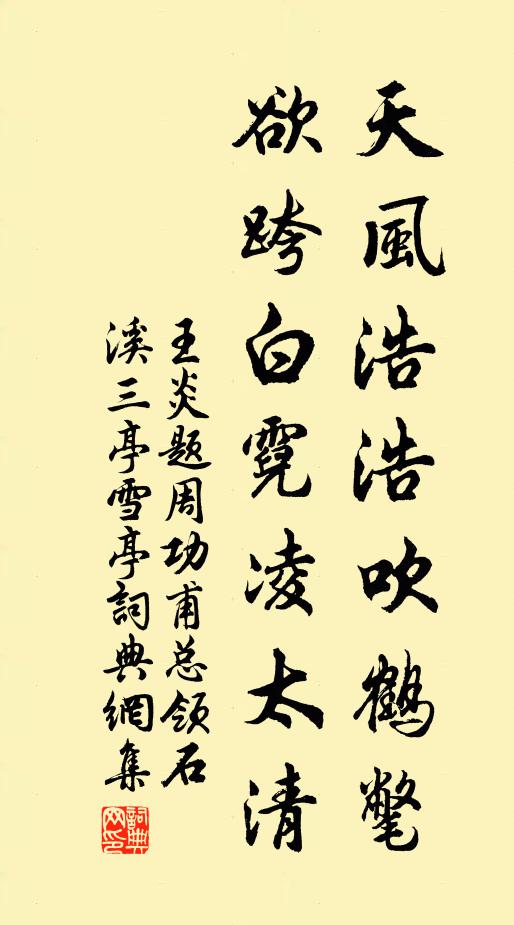 天風浩浩吹鶴氅
欲跨白霓凌太清
王炎題周功甫总领石
溪三亭雪亭詞典網集
詞典網印